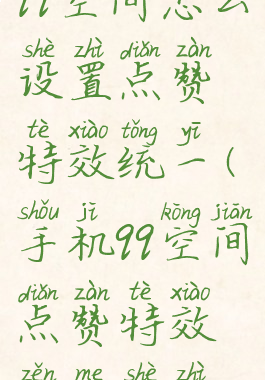 99空间怎么
shè zhì diǎn zàn
设置点赞
tè xiào tǒng yī
特效统一(
shǒu jī kōng jiān
手机99空间
diǎn zàn tè xiào
点赞特效
zěn me shè zhì